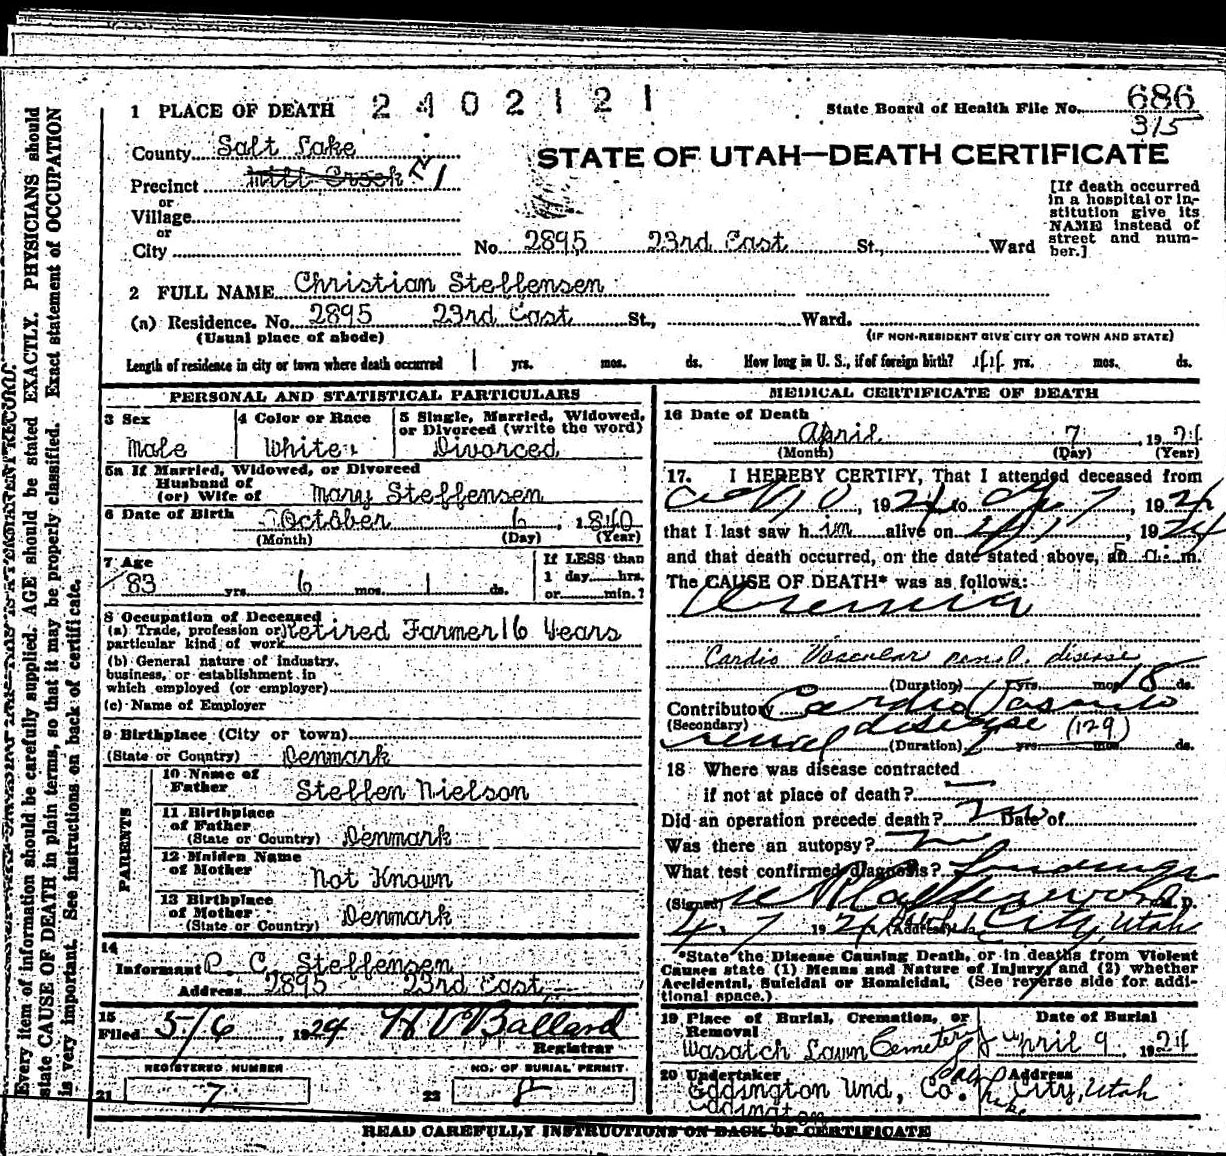 1 PLACE OF DEATH 2402121
State Board of Health File No. 686
315
County Salt Lake
STATE OF UTAH—DEATH CERTIFICATE
Precinct Mill Creek 1
or
Village
or
City
No. 2895 23rd East St., Ward
[If death occurred
in a hospital or in-
stitution give its
NAME instead of
street and num-
ber.]
2 FULL NAME Christian Steffensen
(a) Residence. No. 2895 23rd East St., Ward.
(Usual place of abode)
(IF NON-RESIDENT GIVE CITY OR TOWN AND STATE)
Length of residence in city or town where death occurred 1 yrs. mos. ds. How long in U. S., if of foreign birth? yrs. mos. ds.
PERSONAL AND STATISTICAL PARTICULARS
3 Sex
Male
4 Color or Race
White
5 Single, Married, Widowed,
or Divorced (write the word)
Divorced
5a If Married, Widowed, or Divorced
Husband of
(or) Wife of Mary Steffensen
6 Date of Birth October 6, 1840
(Month) (Day) (Year)
7 Age
83 yrs. 6 mos. 1 ds.
If LESS than
1 day hrs.
or min.?
8 Occupation of Deceased
(a) Trade, profession or
particular kind of work Retired Farmer 16 Years
(b) General nature of industry,
business, or establishment in
which employed (or employer)
(c) Name of Employer
9 Birthplace (City or town)
(State or Country) Denmark
PARENTS
10 Name of
Father Steffen Nielson
11 Birthplace
of Father
(State or Country) Denmark
12 Maiden Name
of Mother Not Known
13 Birthplace
of Mother
(State or Country) Denmark
14
Informant P. C. Steffensen
Address 2895 23rd East
15
Filed 5/6, 1924 H V Ballard
Registrar
REGISTERED NUMBER
21 7
NO. OF BURIAL PERMIT
22
MEDICAL CERTIFICATE OF DEATH
16 Date of Death
April 7, 1924
(Month) (Day) (Year)
17. I HEREBY CERTIFY, That I attended deceased from
, 1924 to 7, 1924
that I last saw him alive on , 1924
and that death occurred, on the date stated above, at m.
The CAUSE OF DEATH* was as follows:
Uremia
Cardio Vascular renal disease
(Duration) yrs. mos. 18 ds.
Contributory Cardio Vascular
(Secondary) renal disease (129)
(Duration) yrs. mos. ds.
18 Where was disease contracted
if not at place of death?
Did an operation precede death? No Date of
Was there an autopsy? No
What test confirmed diagnosis? Findings
(Signed) M. D.
4-7 1924 (Address) City, Utah
*State the Disease Causing Death, or in deaths from Violent
Causes state (1) Means and Nature of Injury, and (2) whether
Accidental, Suicidal or Homicidal. (See reverse side for addi-
tional space.)
19 Place of Burial, Cremation, or
Removal
Wasatch Lawn Cemetery
Date of Burial
April 9, 1924
20 Undertaker
Eddington Und. Co.
Eddington
Address
Salt Lake City, Utah
READ CAREFULLY INSTRUCTIONS ON BACK OF CERTIFICATE
Every item of information should be carefully supplied. AGE should be stated EXACTLY. PHYSICIANS should
state CAUSE OF DEATH in plain terms, so that it may be properly classified. Exact statement of OCCUPATION
is very important. See instructions on back of certificate.